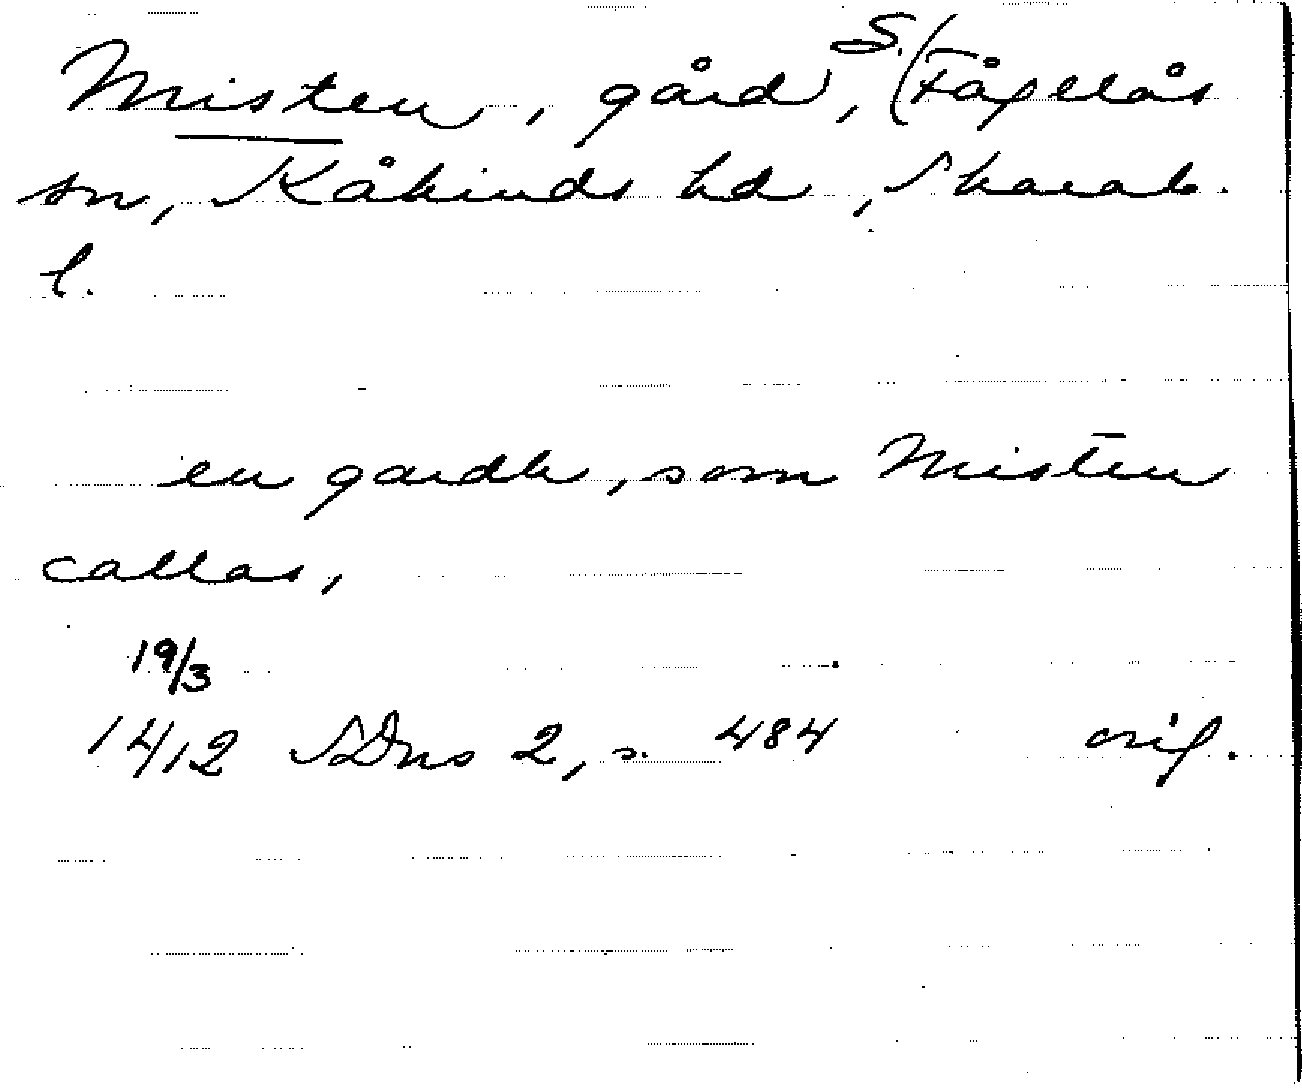 Misten, gård, S. Fågelås
sn, Kåkinds hd, Skarab.
l.
en gardh, som Mistēn
callas,
19/3
1412 SDns 2, s. 484 orig.